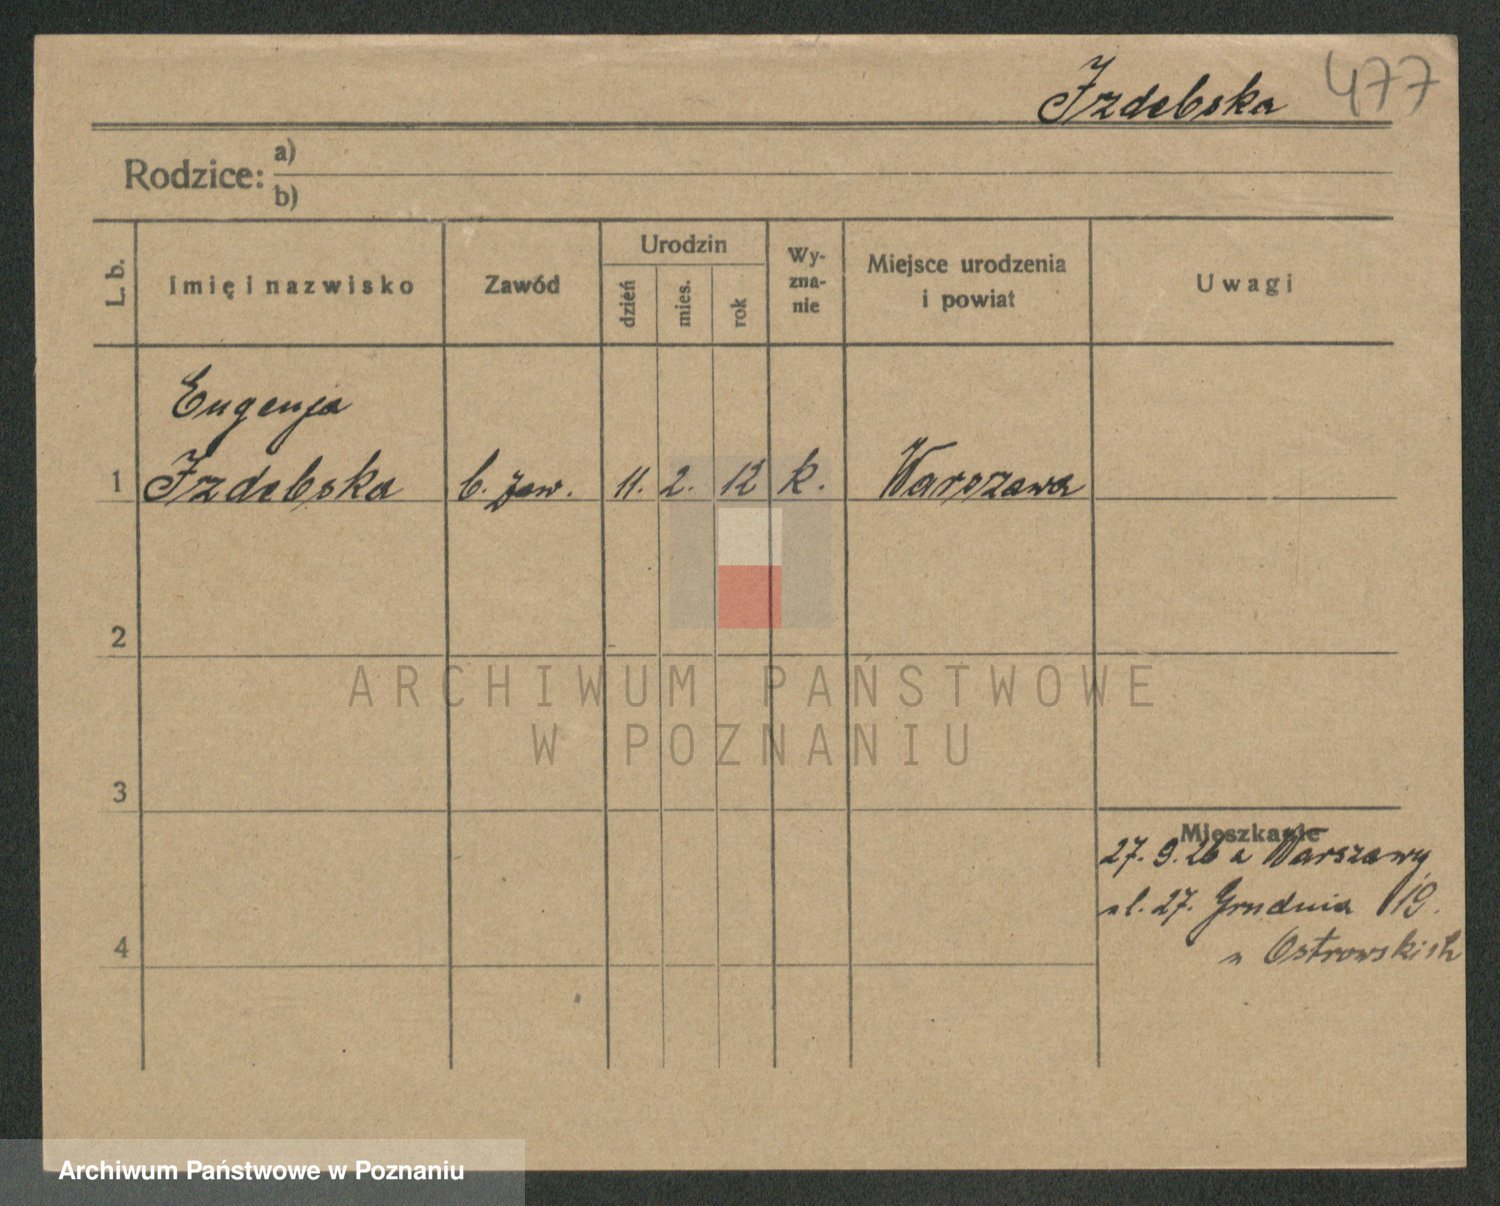 Izdebska 477
Rodzice: a)
b)
L. b.
Imię i nazwisko
Zawód
Urodzin
dzień
mies.
rok
Wy-
zna-
nie
Miejsce urodzenia
i powiat
Uwagi
Eugenja
1 Izdebska b. zaw. 11. 2. 12 k. Warszawa
2
ARCHIWUM PAŃSTWOWE
W POZNANIU
3
Mieszkanie
27. 9. 26 z Warszawy
ul. 27. Grudnia 19.
4
u Ostrowskich
Archiwum Państwowe w Poznaniu